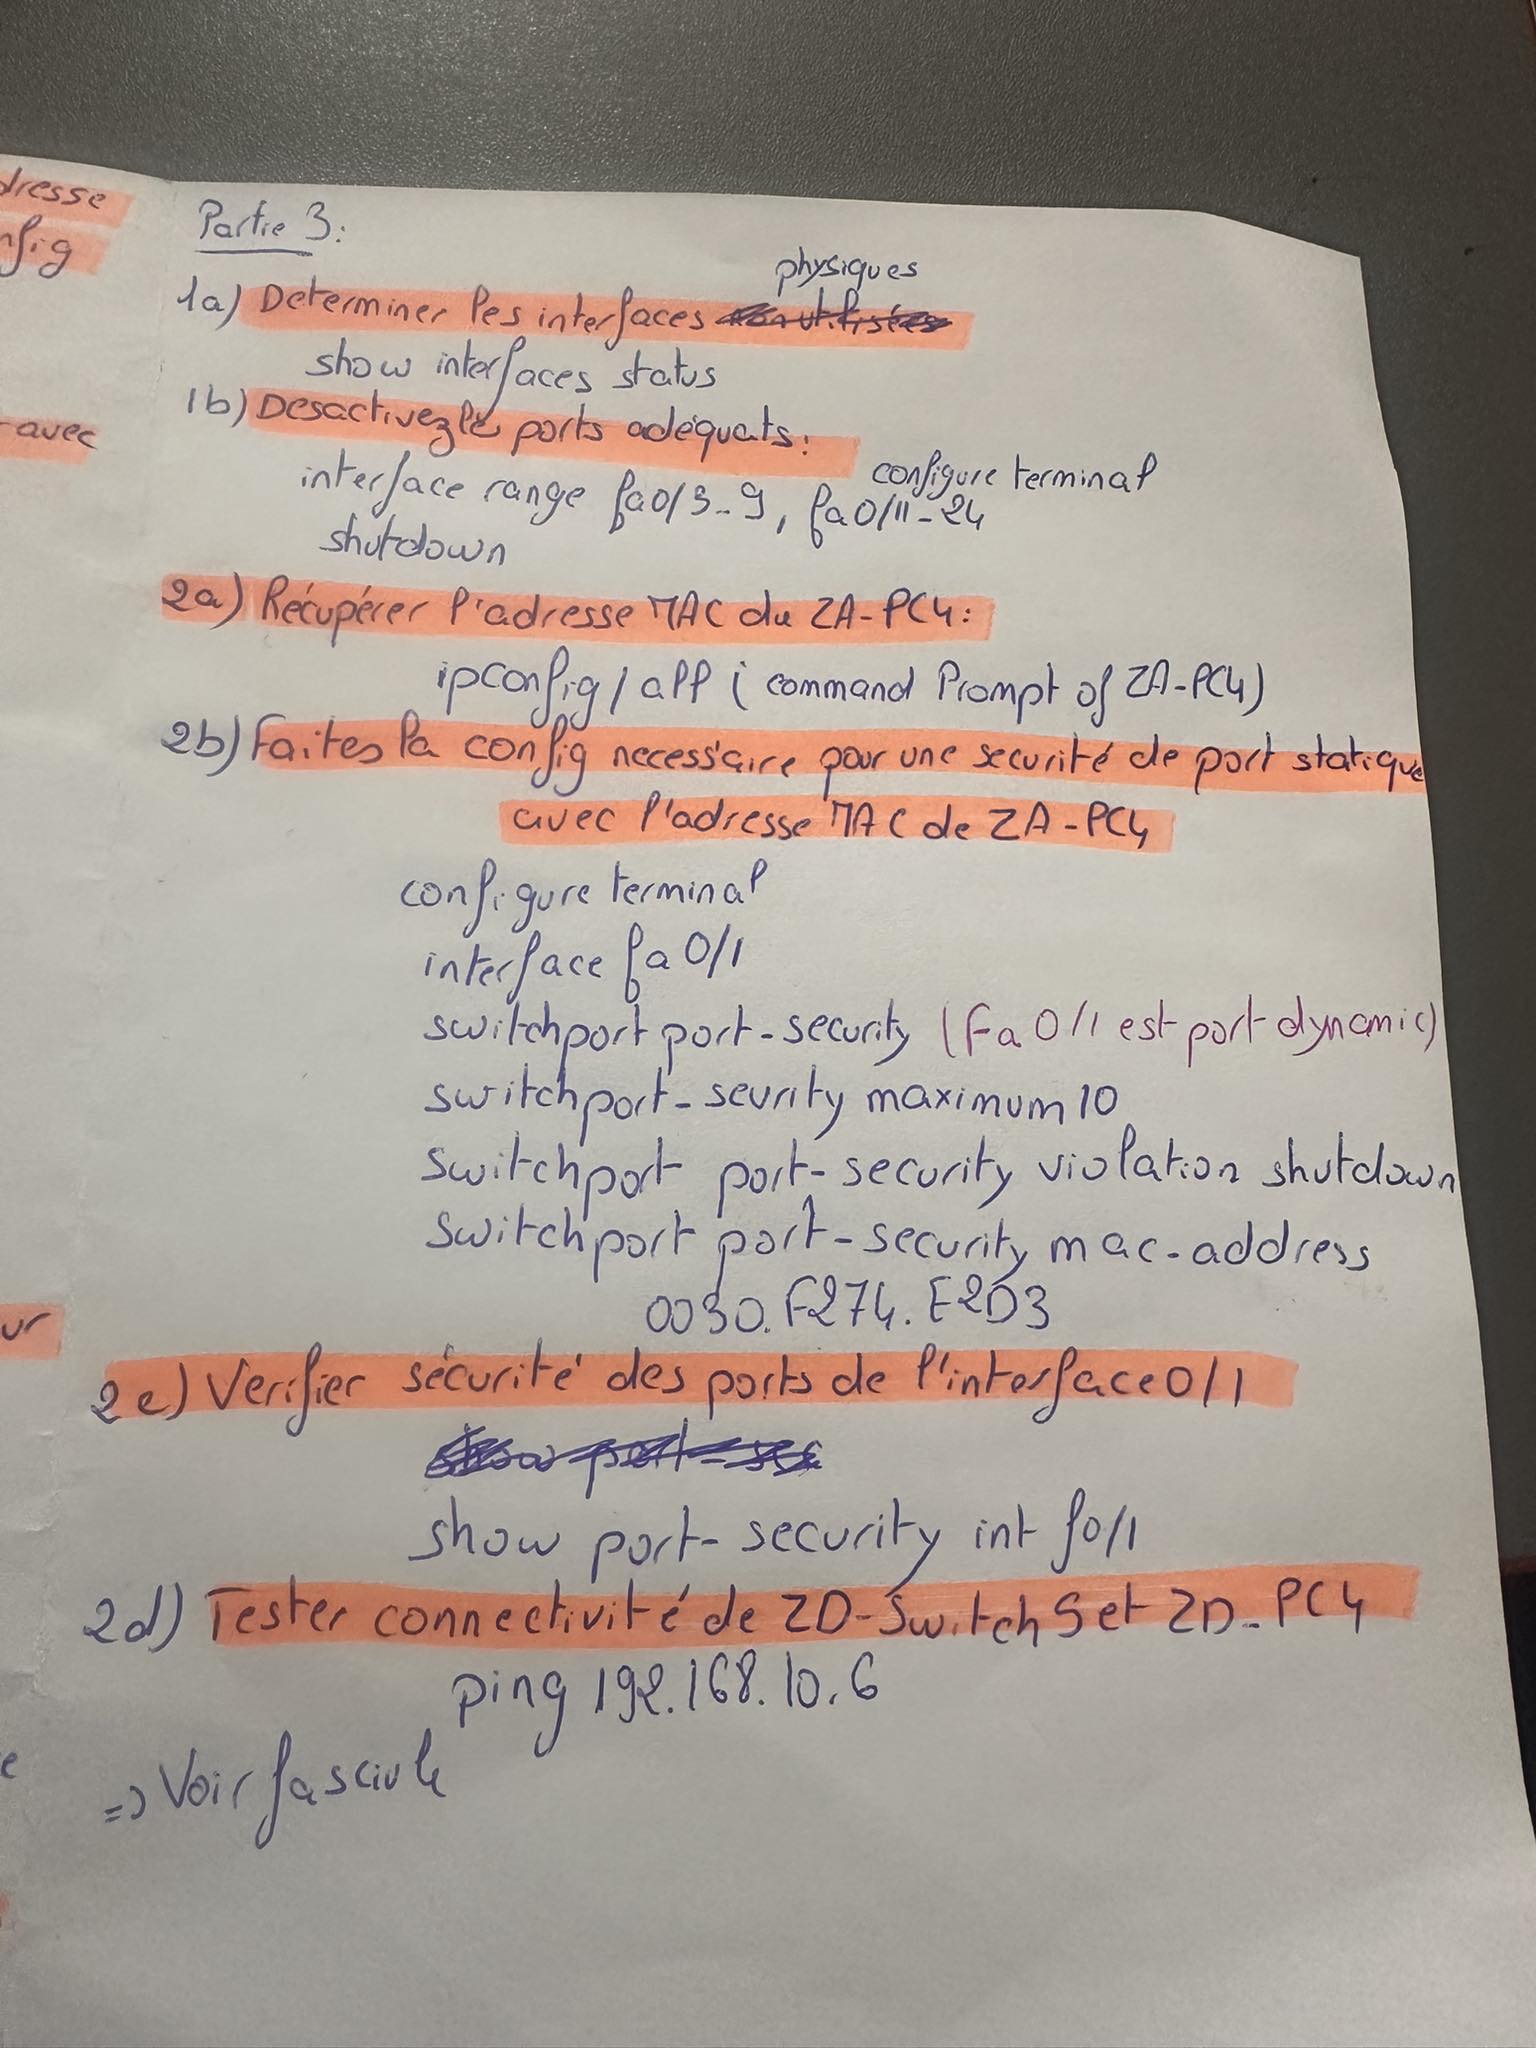 dresse
nfig
avec
ur
e
Partie 3:
physiques
1a) Determiner les interfaces non utilisées
show interfaces status
1b) Desactivez le ports adéquats:
configure terminal
interface range fa0/3-9, fa0/11-24
shutdown
2a) Récupérer l'adresse MAC du ZA-PC4:
ipconfig/all (command Prompt of ZA-PC4)
2b) Faites la config necessaire pour une securité de port statique
avec l'adresse MAC de ZA-PC4
configure terminal
interface fa0/1
switchport port-security (Fa0/1 est port dynamic)
switchport-sevrity maximum 10
switchport port-security violation shutdown
switchport port-security mac-address
0030.F274.E2D3
2c) Verifier sécurité des ports de l'interface 0/1
show port-sec
show port-security int f0/1
2d) Tester connectivité de ZD-Switch5 et ZD-PC4
ping 192.168.10.6
=> Voir fascicule